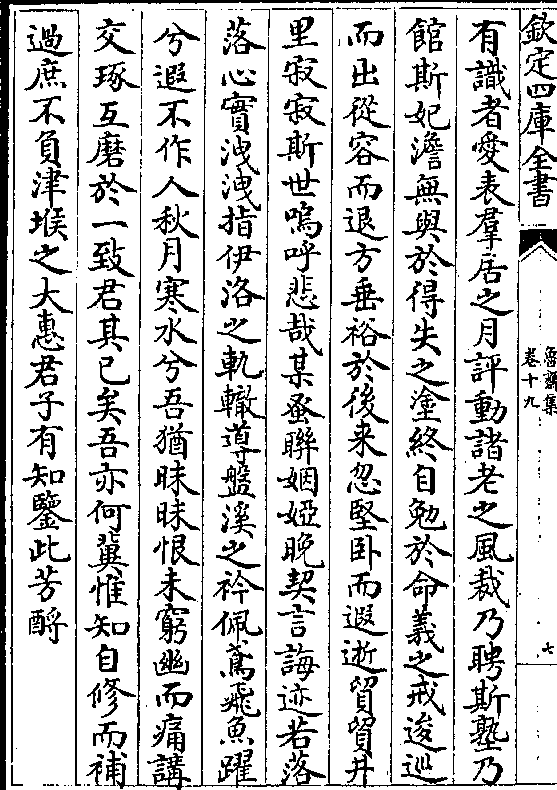 欽定四庫全書
魯齋集
卷十九
七
有識者愛表羣居之月評動諸老之風裁乃聘斯塾乃
館斯妃澹無與於得失之塗終自勉於命義之戒逡巡
而出從容而退方垂裕於後来忽堅卧而遐逝貿貿井
里寂寂斯世嗚呼悲哉某蚤聯姻婭晚契言誨迹若落
落心實洩洩指伊洛之軌轍導盤溪之衿佩鳶飛魚躍
兮遐不作人秋月寒水兮吾猶昧昧恨未窮幽而痛講
交琢互磨於一致君其已矣吾亦何冀惟知自修而補
過庶不負津堠之大惠君子有知鑒此芳酹